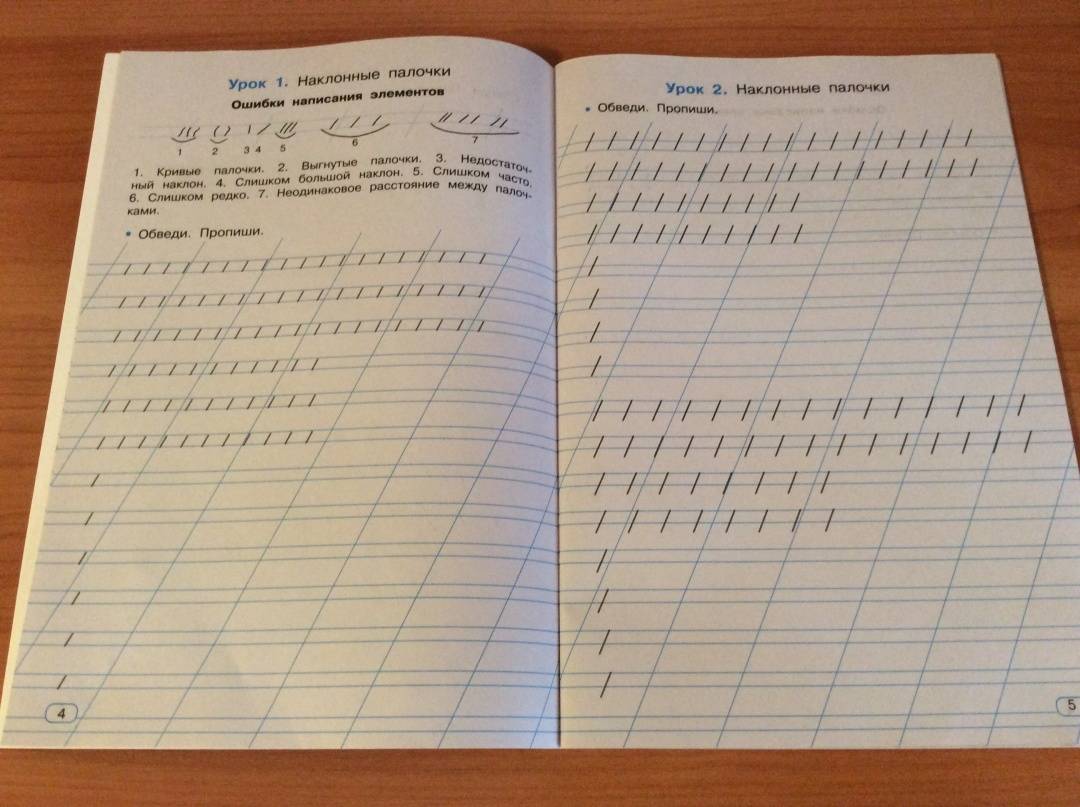 Урок 1. Наклонные палочки
Ошибки написания элементов
1 2 3 4 5 6 7
1. Кривые палочки. 2. Выгнутые палочки. 3. Недостаточ-
ный наклон. 4. Слишком большой наклон. 5. Слишком часто.
6. Слишком редко. 7. Неодинаковое расстояние между палоч-
ками.
• Обведи. Пропиши.
4
Урок 2. Наклонные палочки
• Обведи. Пропиши.
5